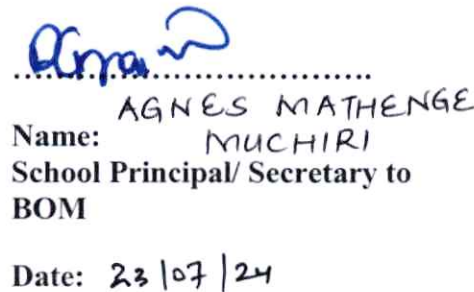 AGNES MATHENGE
Name: MUCHIRI
School Principal/ Secretary to
BOM
Date: 23/07/24